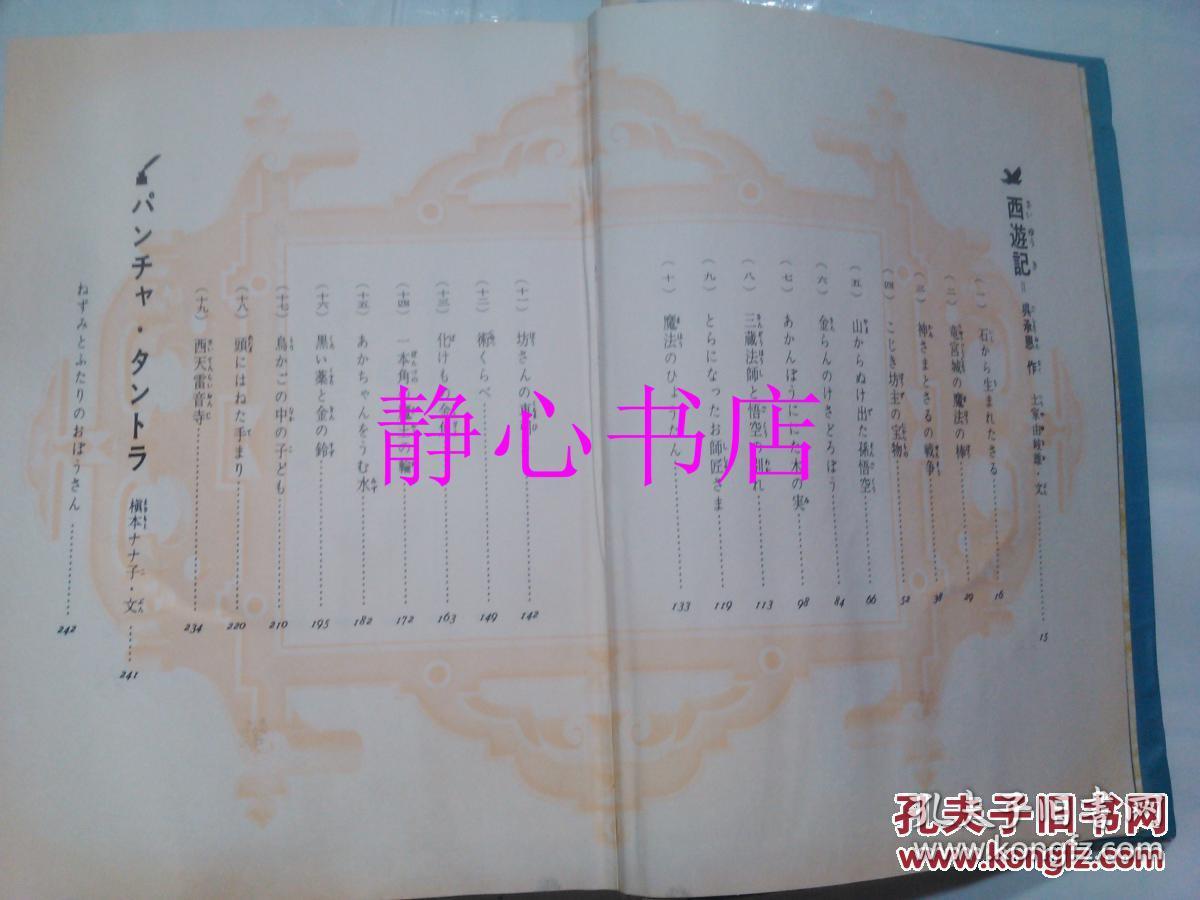 西遊記=呉承恩 作 土家由岐雄・文 15
(一) 石から生まれたさる 16
(二) 竜宮城の魔法の棒 29
(三) 神さまとさるの戦争 38
(四) こじき坊主の宝物 52
(五) 山からぬけ出た孫悟空 66
(六) 金らんのけさどろぼう 84
(七) あかんぼうににた木の実 98
(八) 三蔵法師と悟空の別れ 113
(九) とらになったお師匠さま 119
(十) 魔法のひょうたん 133
(十一) 坊さんの 142
(十二) 術くらべ 149
(十三) 化けもの金 163
(十四) 一本角 の輪 172
(十五) あかちゃんをうむ水 182
(十六) 黒い薬と金の鈴 195
(十七) 鳥かごの中の子ども 210
(十八) 頭にはねた手まり 220
(十九) 西天雷音寺 234
パンチャ・タントラ 槇本ナナ子・文 241
ねずみとふたりのおぼうさん 242
静心书店
孔夫子旧书网
www.kongfz.com